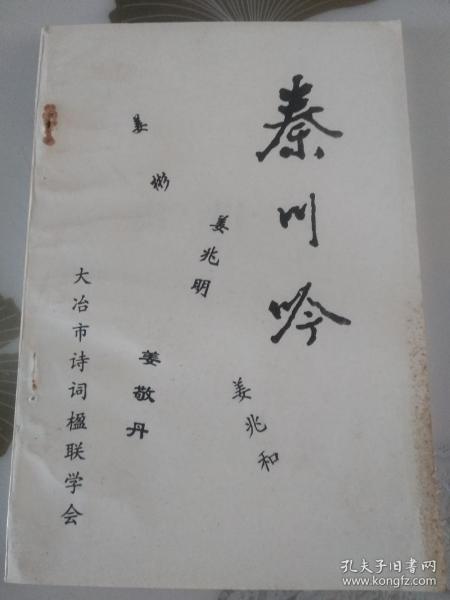 秦川吟
姜兆和
姜兆明
姜彬
姜敬丹
大冶市诗词楹联学会
孔夫子旧书网
www.kongfz.com